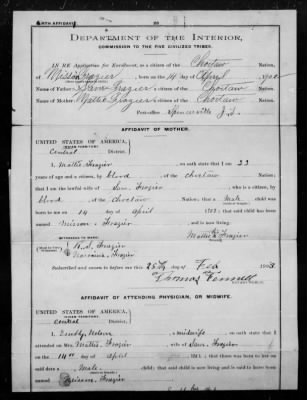 BIRTH AFFIDAVIT.
DEPARTMENT OF THE INTERIOR,
COMMISSION TO THE FIVE CIVILIZED TRIBES.
IN RE Application for Enrollment, as a citizen of the Choctaw Nation,
of Frazier, born on the 14 day of April, 1902
Name of Father: Sam Frazier a citizen of the Choctaw Nation.
Name of Mother: Mattie Frazier a citizen of the Choctaw Nation.
Post-office Spencerville I.T.
AFFIDAVIT OF MOTHER.
UNITED STATES OF AMERICA,
INDIAN TERRITORY
Central District.
I, Mattie Frazier, on oath state that I am 23
years of age and a citizen, by blood, of the Choctaw Nation;
that I am the lawful wife of Sam Frazier, who is a citizen, by
blood of the Choctaw Nation; that a male child was
born to me on 14 day of April 1902, that said child has been
named Frazier, and is now living.
Mattie Frazier
WITNESSES TO MARK:
Frazier
Frazier
Subscribed and sworn to before me this 25th day of Feb 1903.
Thomas Fennell
NOTARY PUBLIC.
AFFIDAVIT OF ATTENDING PHYSICIAN, OR MIDWIFE.
UNITED STATES OF AMERICA,
INDIAN TERRITORY
Central District.
I, Nelson, a midwife, on oath state that I
attended on Mrs. Mattie Frazier, wife of Sam Frazier
on the 14th day of April, 1902; that there was born to her on
said date a Male child; that said child is now living and is said to have been
named Frazier